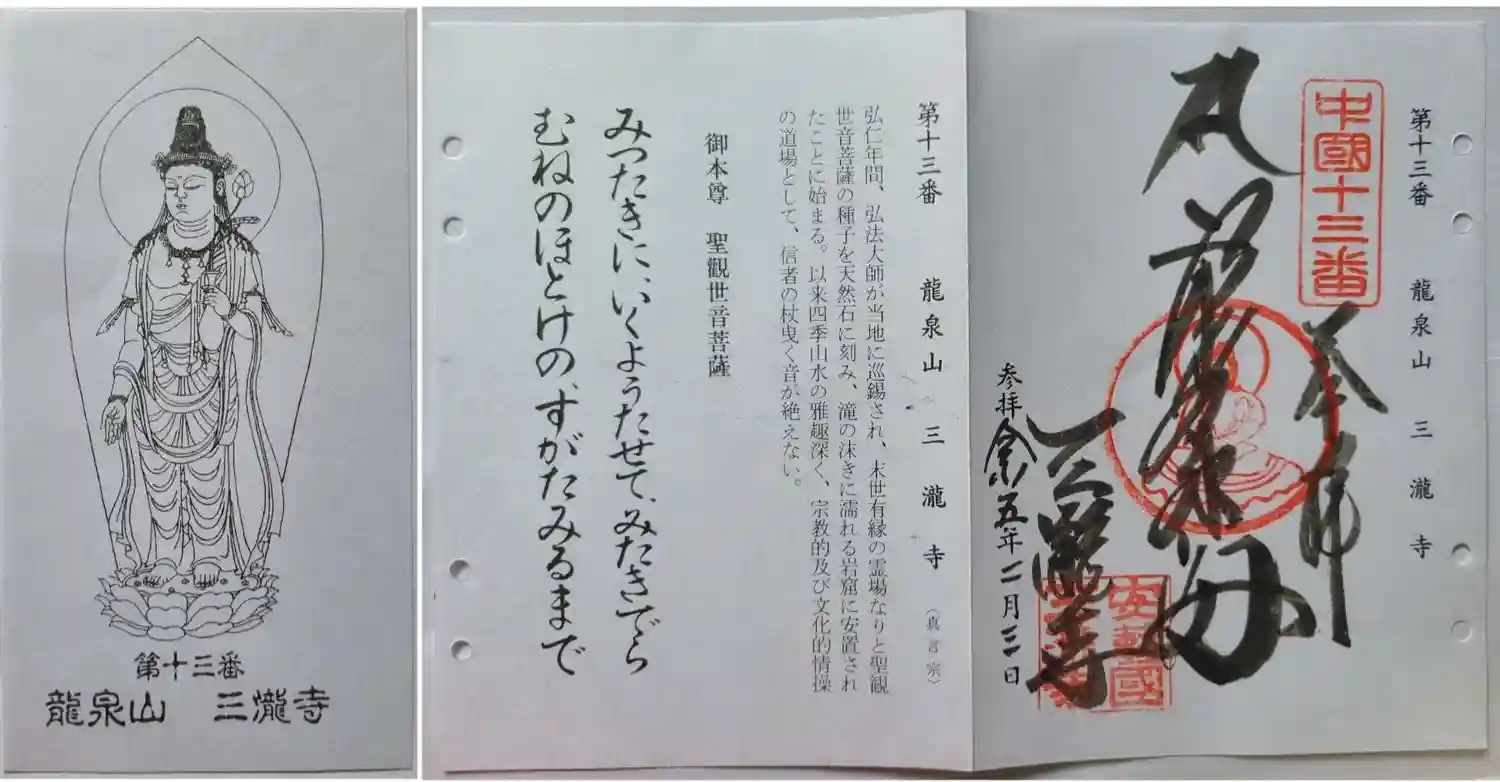 第十三番
龍泉山 三瀧寺
第十三番 龍泉山 三瀧寺 (真言宗)
弘仁年間、弘法大師が当地に巡錫され、末世有縁の霊場なりと聖観
世音菩薩の種子を天然石に刻み、滝の沫きに濡れる岩窟に安置され
たことに始まる。以来四季山水の雅趣深く、宗教的及び文化的情操
の道場として、信者の杖曳く音が絶えない。
御本尊 聖觀世音菩薩
みつたきに、いくようたせて、みたきでら
むねのほとけの、すがたみるまで
第十三番 龍泉山 三瀧寺
中國十三番
奉拝
三瀧寺
安藝國
参拝 令和五年二月三日